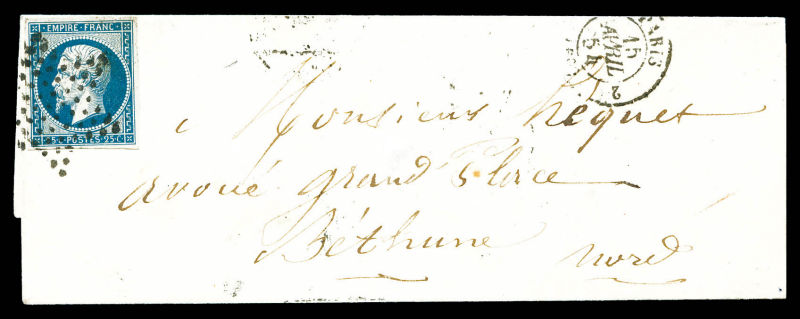 EMPIRE FRANC
25 C POSTES 25 C
PARIS
15
AVRIL
5 E
2
Monsieur Hequet
avoué grand Place
Béthune nord